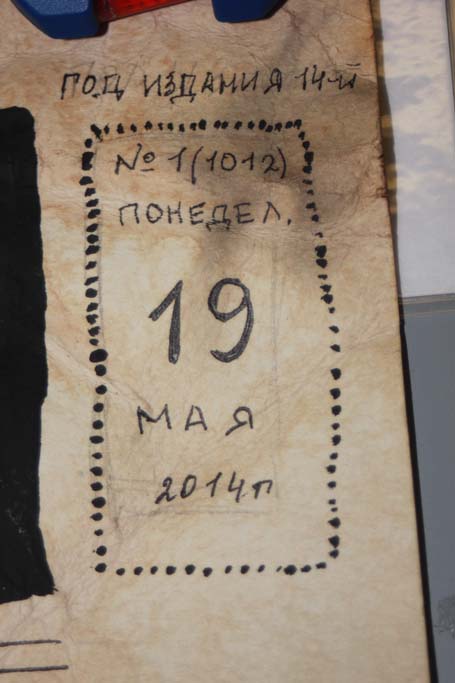 ПОД ИЗДАНИЯ 14-й
№ 1(1012)
ПОНЕДЕЛ.
19
МАЯ
2014г